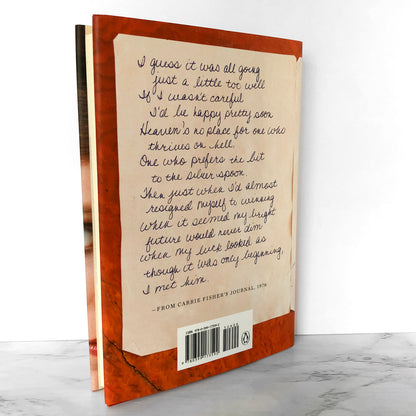 I guess it was all going
just a little too well
If I wasn't careful
I'd be happy pretty soon
Heaven's no place for one who
thrives on hell.
One who prefers the bit
to the silver spoon.
Then just when I'd almost
resigned myself to winning
When it seemed my bright
future would never dim
when my luck looked as
though it was only beginning,
I met him.
—FROM CARRIE FISHER'S JOURNAL, 1976